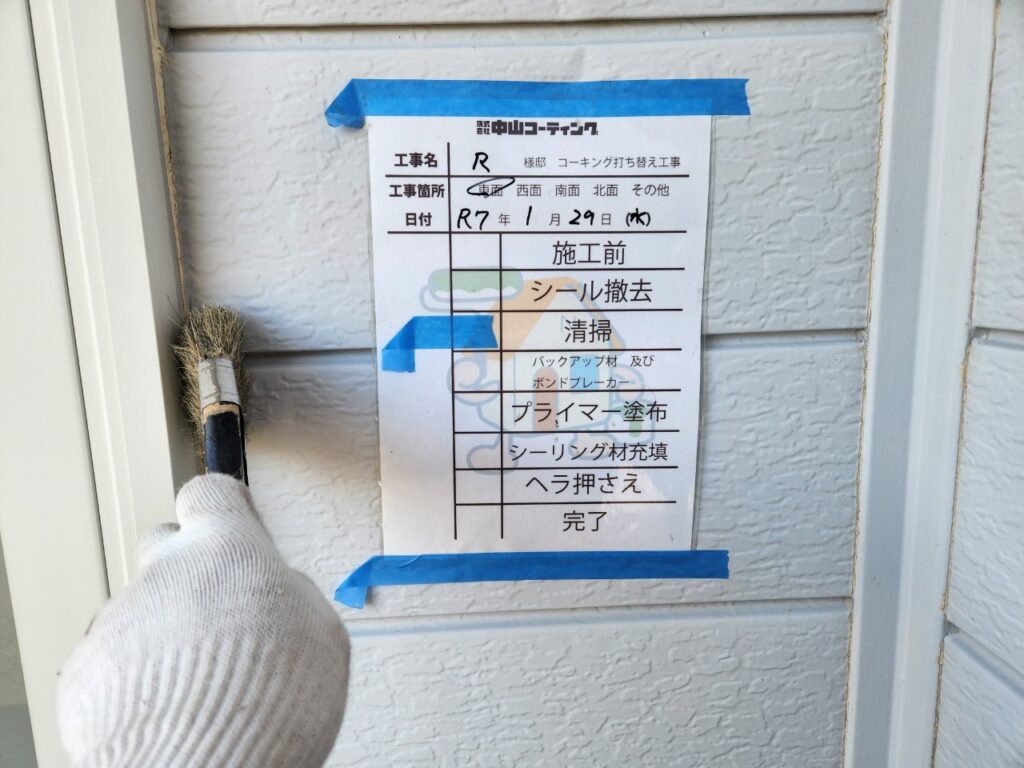 株式会社中山コーティング
工事名 R 様邸 コーキング打ち替え工事
工事箇所 東面 西面 南面 北面 その他
日付 R7年 1月 29日 (水)
施工前
シール撤去
清掃
バックアップ材 及び
ボンドブレーカー
プライマー塗布
シーリング材充填
ヘラ押さえ
完了